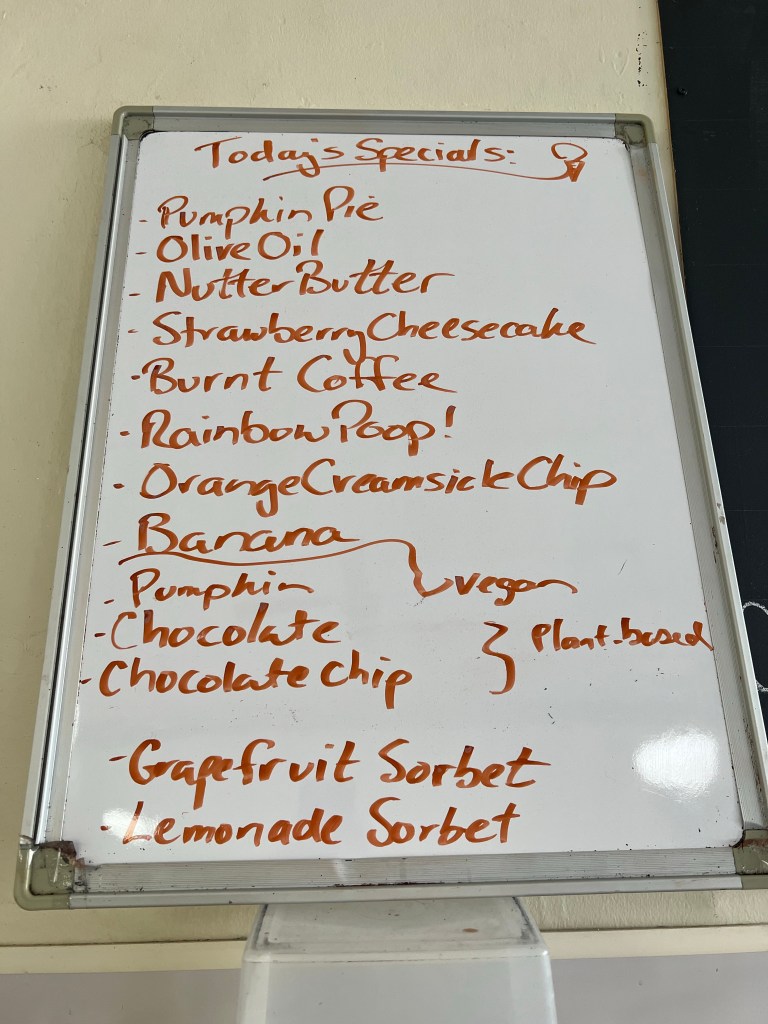 Today's Specials:
- Pumpkin Pie
- Olive Oil
- Nutter Butter
- Strawberry Cheesecake
- Burnt Coffee
- Rainbow Poop!
- Orange Creamsicle Chip
- Banana
- Pumpkin vegan
- Chocolate } Plant-based
- Chocolate Chip
- Grapefruit Sorbet
- Lemonade Sorbet